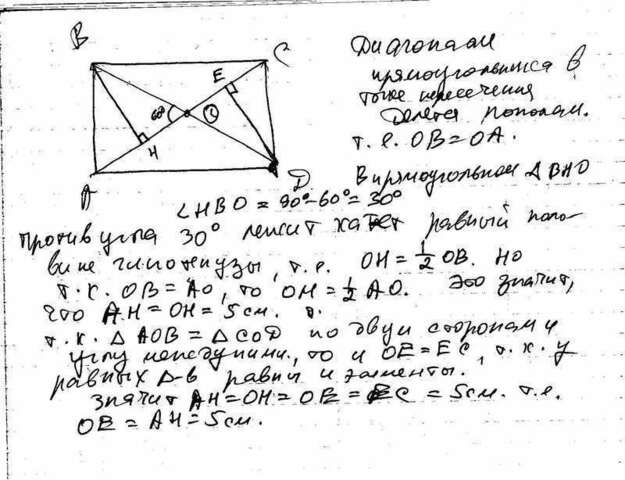 B
C
E
60°
O
H
A
D
Диагонали
прямоугольника в
точке пересечения
делятся пополам.
т.е. OB = OA.
В прямоугольном Δ BHO
∠HBO = 90°-60° = 30°
Против угла 30° лежит катет равный поло-
вине гипотенузы, т.е. OH = 1/2 OB. Но
т.к. OB = AO, то OH = 1/2 AO. Это значит,
что AH = OH = 5см. т.
т.к. Δ AOB = Δ COD по двум сторонам и
углу между ними, то и OE = EC, т.к. у
равных Δ-в равны и элементы.
Значит AH = OH = OE = EC = 5см. т.е.
OE = AH = 5см.